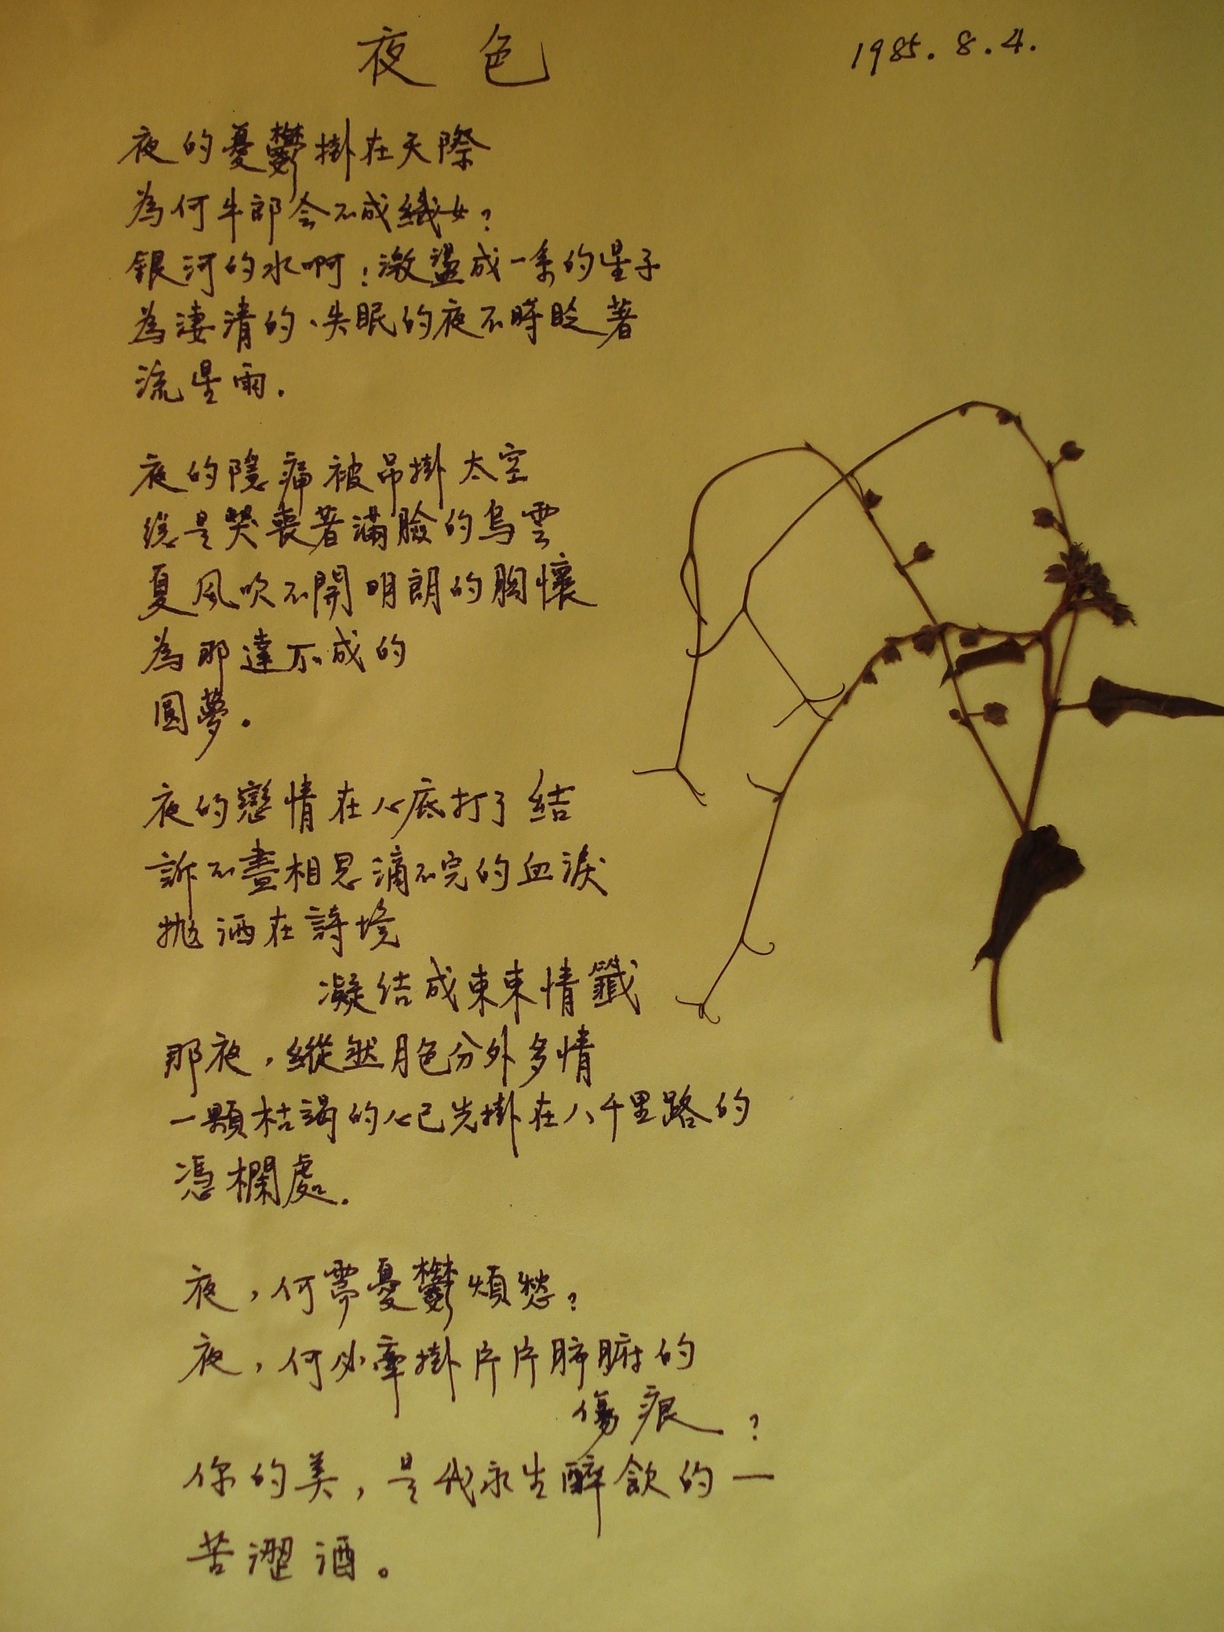 夜色
1985.8.4.
夜的憂鬱掛在天際
為何牛郎会不成織女?
銀河的水啊!激盪成一条的星子
為淒清的、失眠的夜不時眨著
流星雨.
夜的隱痛被吊掛太空
總是哭喪著滿臉的烏雲
夏風吹不開明朗的胸懷
為那達不成的
圓夢.
夜的戀情在心底打了結
訴不盡相思滴不完的血淚
拋洒在詩境
凝结成束束情籤
那夜,縱然月色分外多情
一顆枯渴的心已先掛在八千里路的
憑欄處.
夜,何需憂鬱煩愁?
夜,何必牽掛片片肺腑的
傷痕?
你的美,是我永生醉飲的一
苦澀酒。